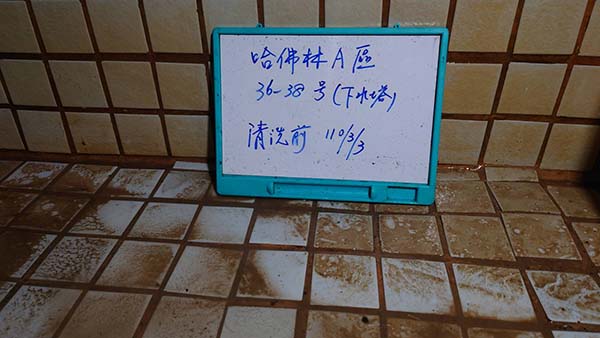 哈佛林A區
36-38号(下水塔)
清洗前 110/3/3